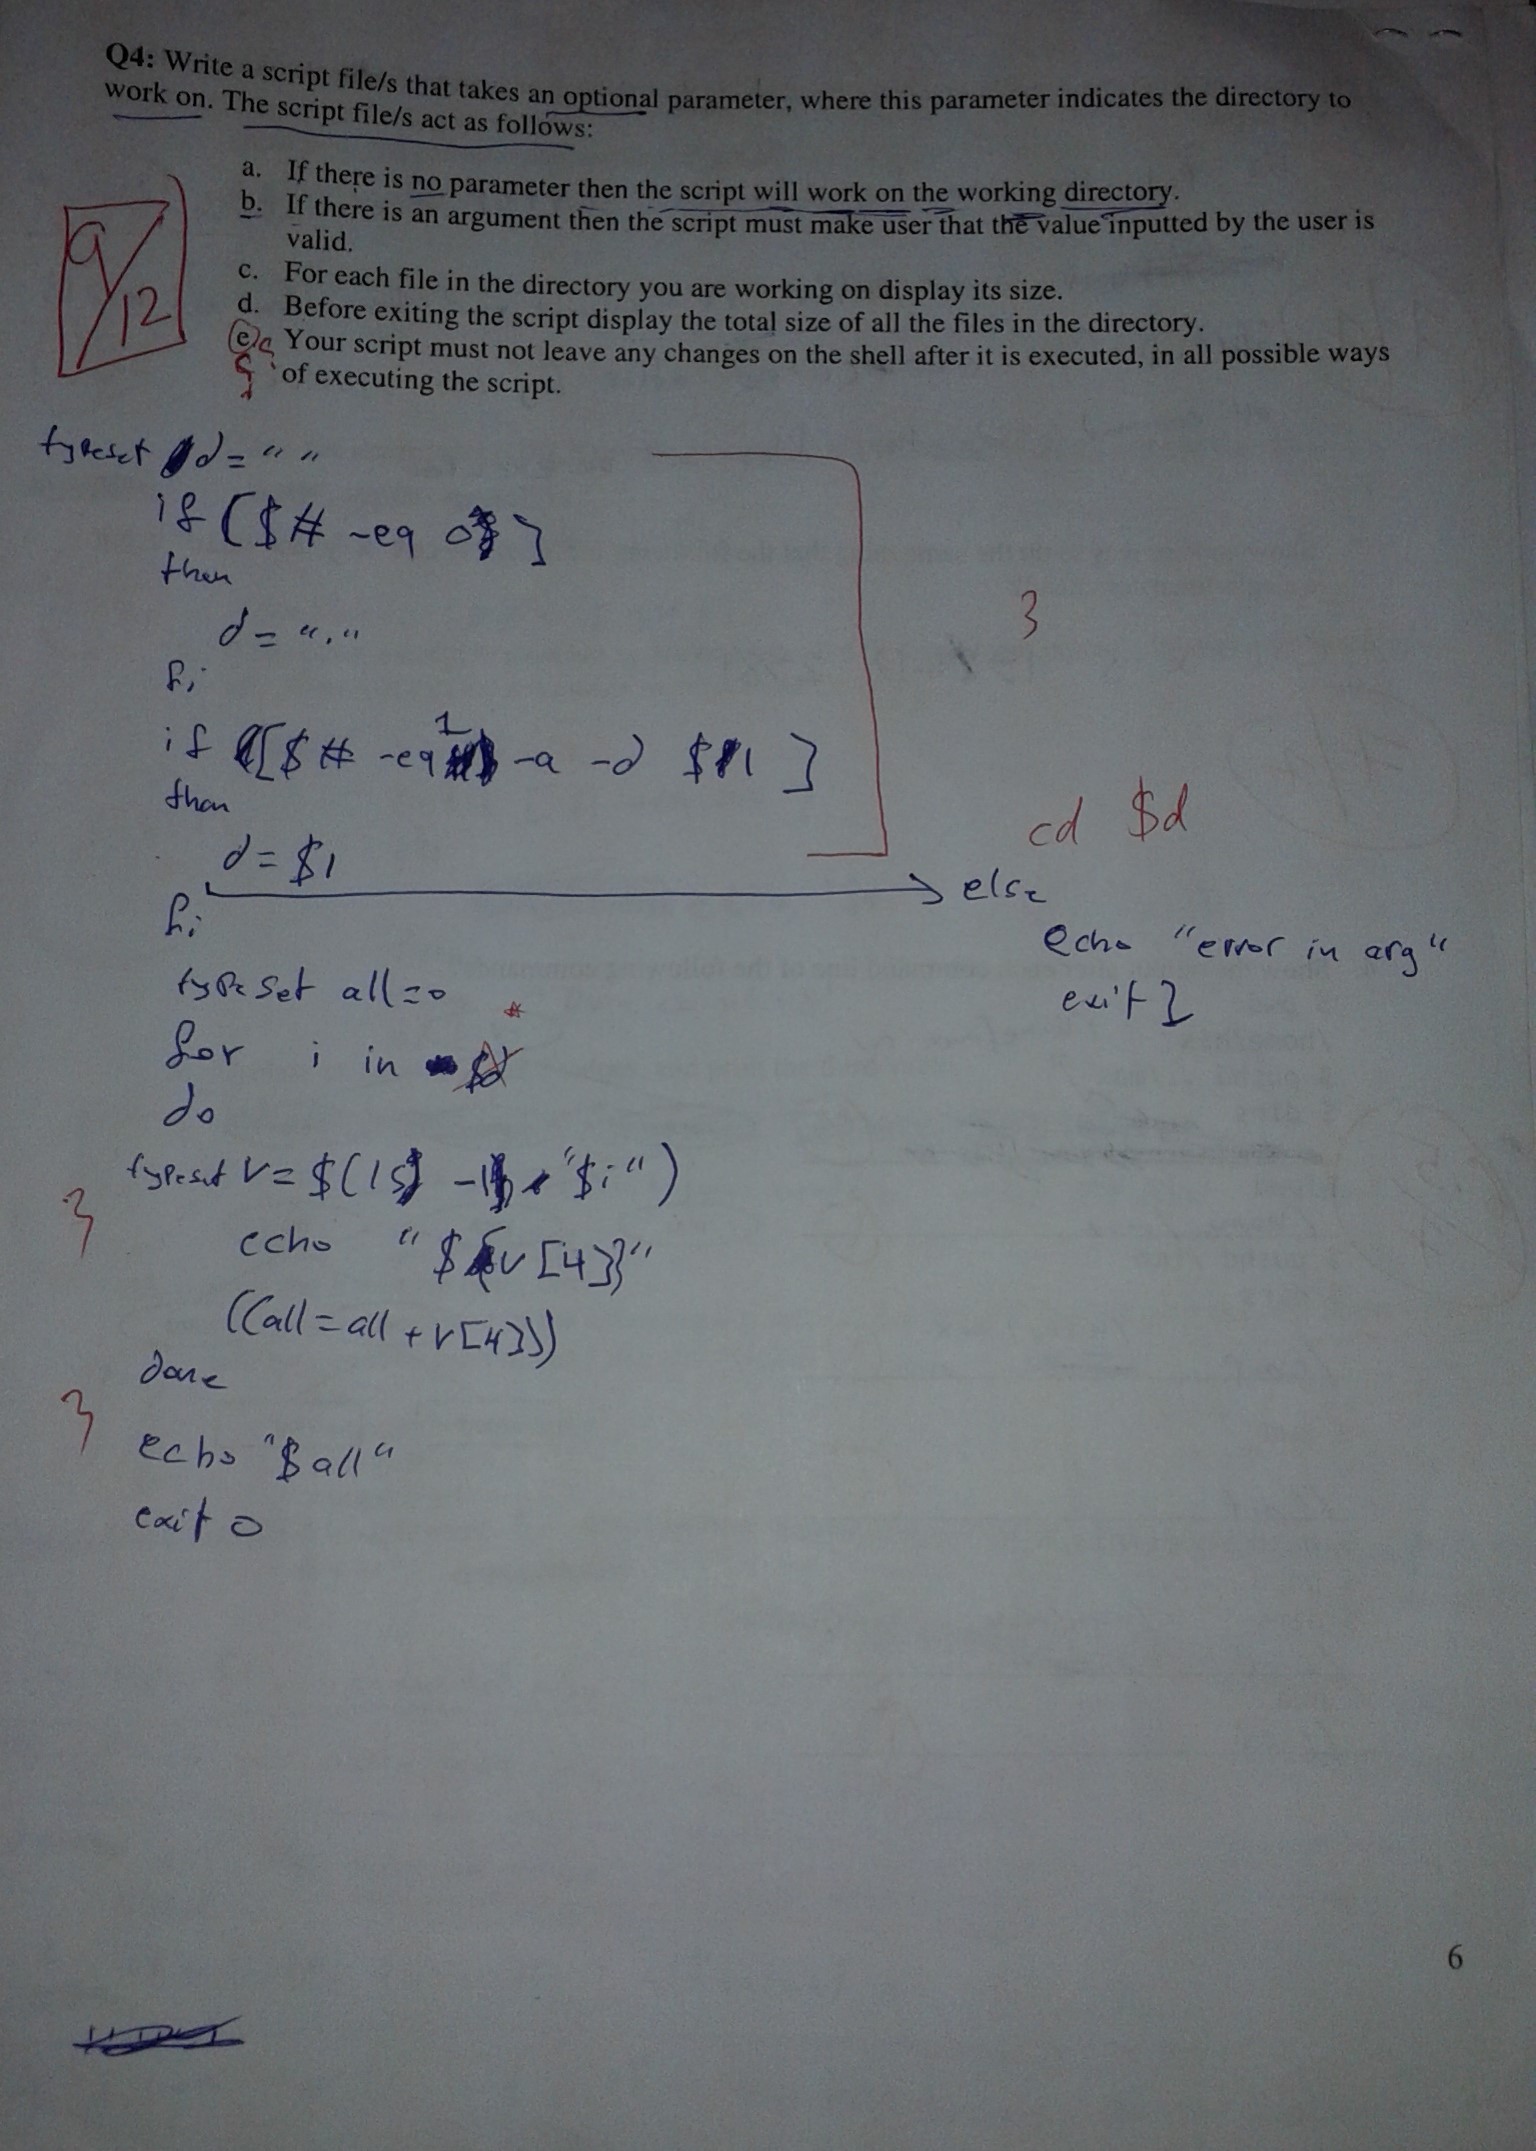 Q4: Write a script file/s that takes an optional parameter, where this parameter indicates the directory to
work on. The script file/s act as follows:
a. If there is no parameter then the script will work on the working directory.
b. If there is an argument then the script must make user that the value inputted by the user is
valid.
c. For each file in the directory you are working on display its size.
d. Before exiting the script display the total size of all the files in the directory.
e. Your script must not leave any changes on the shell after it is executed, in all possible ways
of executing the script.
9/12
typeset d=" "
if [$# -eq 0]
then
d="."
fi
3
if [$# -eq 1 -a -d $1 ]
then
cd $d
d=$1
else
fi
echo "error in arg"
typeset all=0
exit 1
*
for i in $d
do
typeset v=$(ls -l "$i")
3
echo "${v[4]}"
((all=all+v[4]))
done
3
echo "$all"
exit 0
6